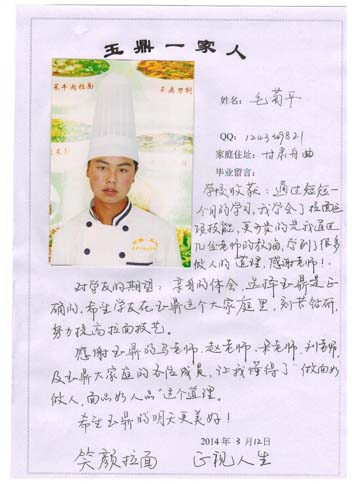 玉鼎一家人
菜牛肉拉面
姓名：毛菊平
QQ：1243509821
家庭住址：甘肃舟曲
毕业留言：
学校收获：通过短短一
个月的学习，我学会了拉面这
项技能，更可贵的是我通过
几位老师的教诲，学到了很多
做人的道理，感谢老师！
对学友的期望：亲身的体会，选择玉鼎是正
确的，希望学友在玉鼎这个大家庭里，刻苦钻研，
努力提高拉面技艺。
感谢玉鼎的马老师、赵老师、宋老师、刘老师，
及玉鼎大家庭的各位成员，让我懂得了“做面如
做人，面品如人品”这个道理。
希望玉鼎的明天更美好！
2014年3月12日
笑颜拉面 正视人生